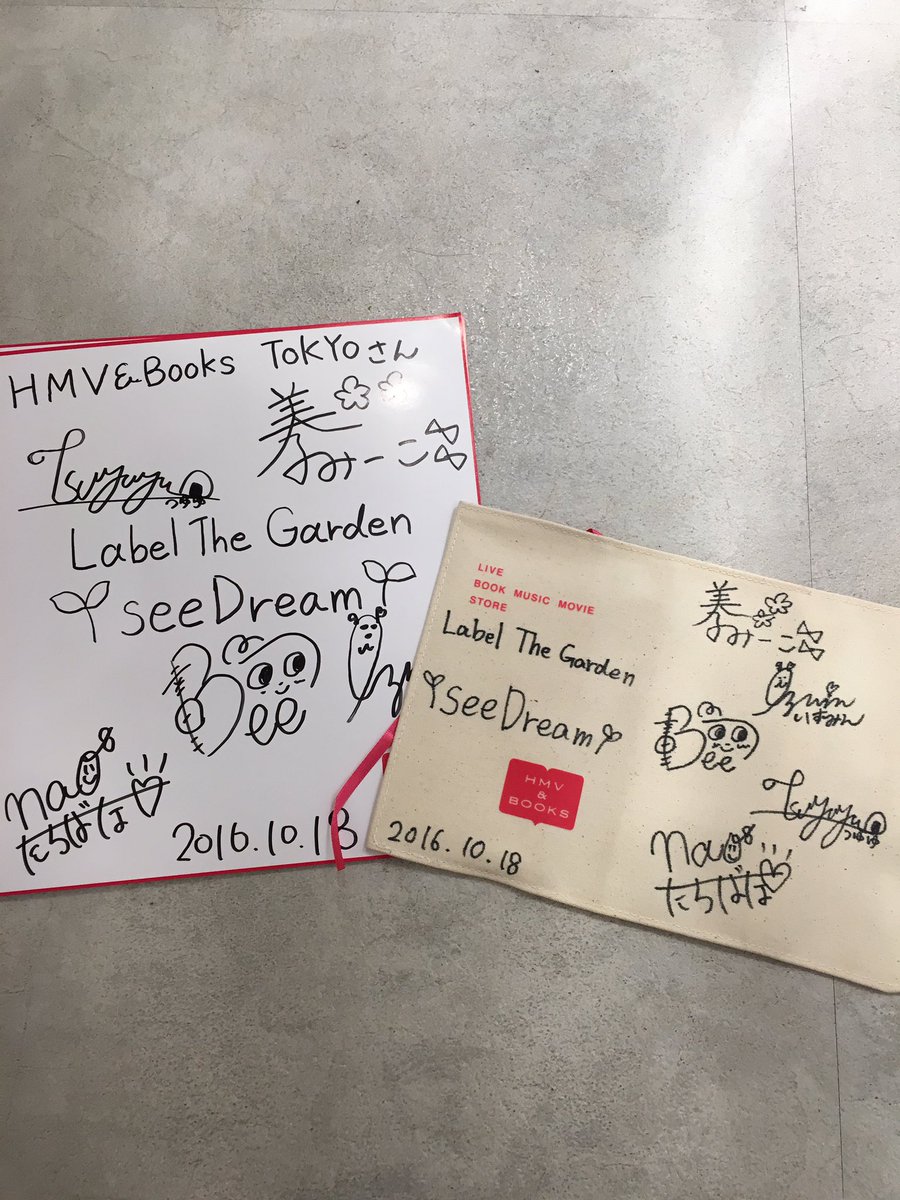 HMV&Books TOKYOさん
美
みーこ
Tsuyuyu
つゆゆ
Label The Garden
seeDream
Bee
nao
たちばな
2016.10.18
LIVE
BOOK MUSIC MOVIE
STORE
Label The Garden
seeDream
HMV
&
BOOKS
2016.10.18
美
みーこ
いずみん
Bee
Tsuyuyu
つゆゆ
nao
たちばな